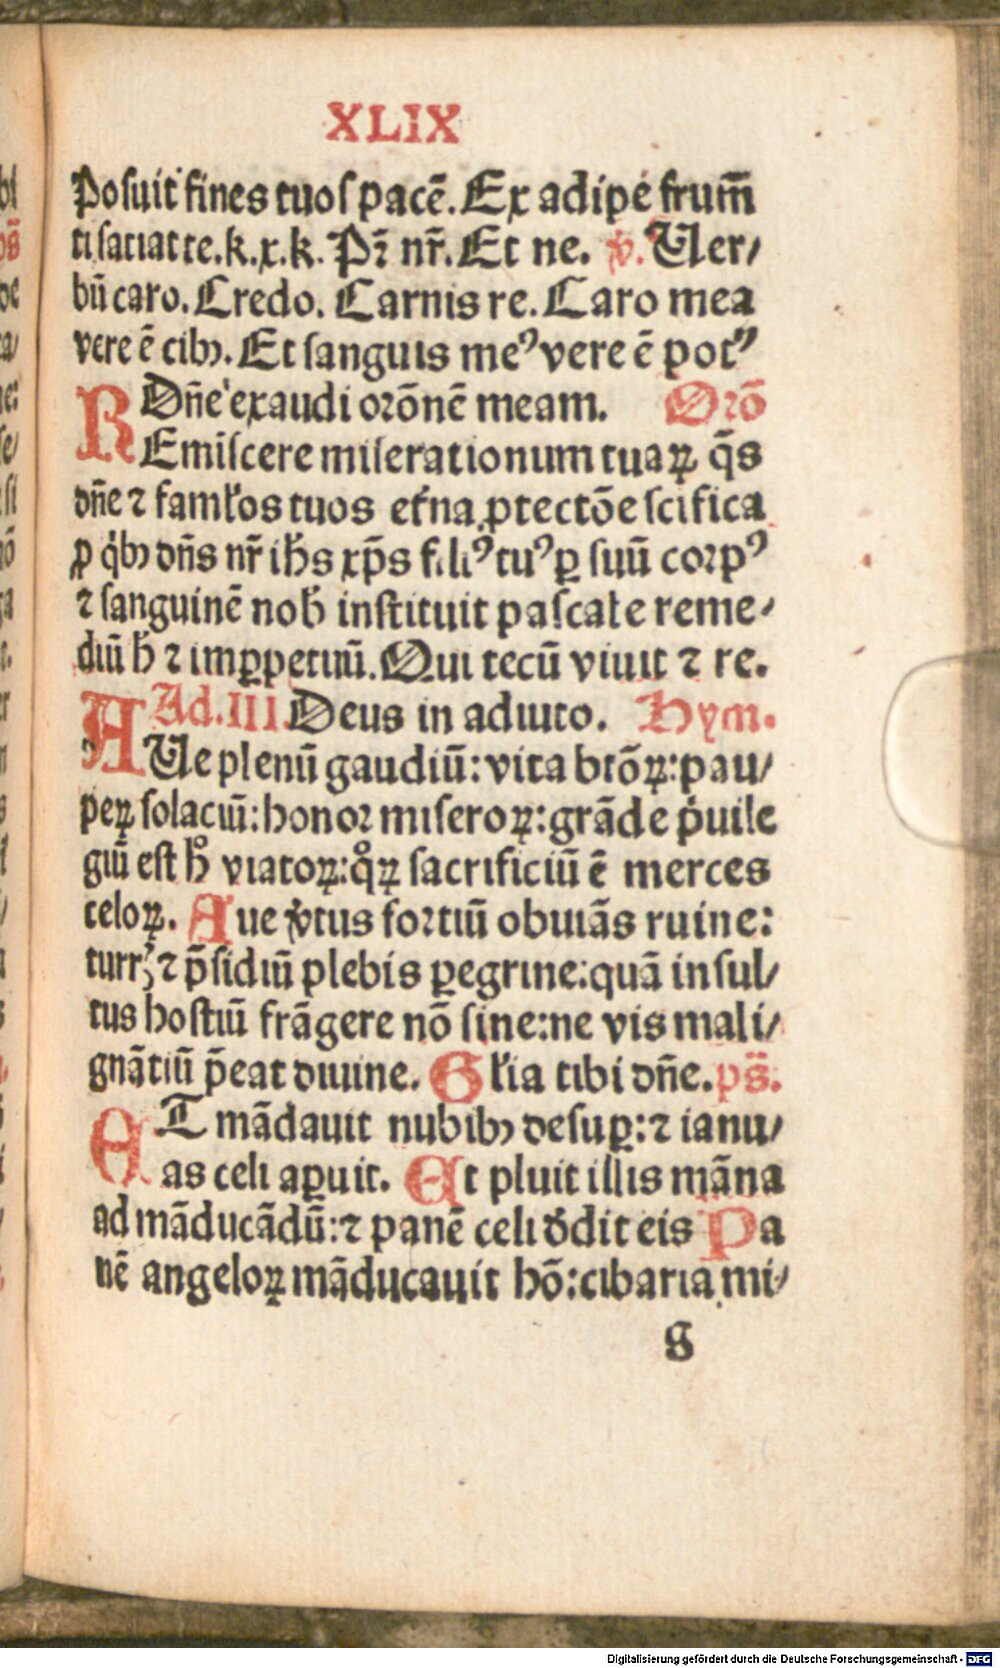 XLIX
Posuit fines tuos pacē. Ex adipe frum̄
ti satiat te. k. x. k. Pr̄ nr̄. Et ne. v̄. Uer⸗
bū caro. Credo. Carnis re. Caro mea
vere ē cibꝫ. Et sanguis meꝰ vere ē potꝰ
Dn̄e exaudi orōnē meam. Orō
REmiscere miserationum tuaꝝ q̄s
dn̄e ⁊ famłos tuos et̄na ꝓtectōe scifica
ꝓ qͥbꝫ dn̄s nr̄ ih̄s xp̄s filiꝰ tuꝰ ꝑ suū corpꝰ
⁊ sanguinē nob̄ instituit pascale reme⸗
diū h̄ ⁊ imꝑpetuū. Qui tecū viuit ⁊ re.
Ad. III. Deus in adiuto. Hym.
AUe plenū gaudiū: vita btōꝝ: pau⸗
peꝝ solaciū: honor miseroꝝ: grāde pͥuile
giū est hͦ viatoꝝ: qͦꝝ sacrificiū ē merces
celoꝝ. Aue v̄tus fortiū obuiās ruine:
turrꝭ ⁊ p̄sidiū plebis ꝑegrine: quā insul⸗
tus hostiū frāgere nō sine: ne vis mali⸗
gnātiū p̄eat diuine. Głia tibi dn̄e. ps̄.
ET mādauit nubibꝫ desuꝑ: ⁊ ianu⸗
as celi aꝑuit. Et pluit illis māna
ad māducādū: ⁊ panē celi d̄dit eis Pa
nē angeloꝝ māducauit hō: cibaria mi⸗
s
Digitalisierung gefördert durch die Deutsche Forschungsgemeinschaft - DFG